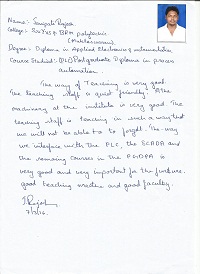 Name:- Sampati Rajesh
College:- SVITS & BRM polytechnic
(Mahaboobnagar)
Degree:- Diploma in Applied Electronics & instrumentation
Course Studied:- (PLC) Postgraduate Diploma in process
automation.
The way of Teaching is very good.
The teaching staff is quiet friendly. The
machinary at the institute is very good. The
teaching staff is teaching in such a way that
we will not be able to to forget. The way
we interface with the PLC, the SCADA and
the remaining courses in the PGDPA is
very good and very important for the further.
good teaching master and good faculty.